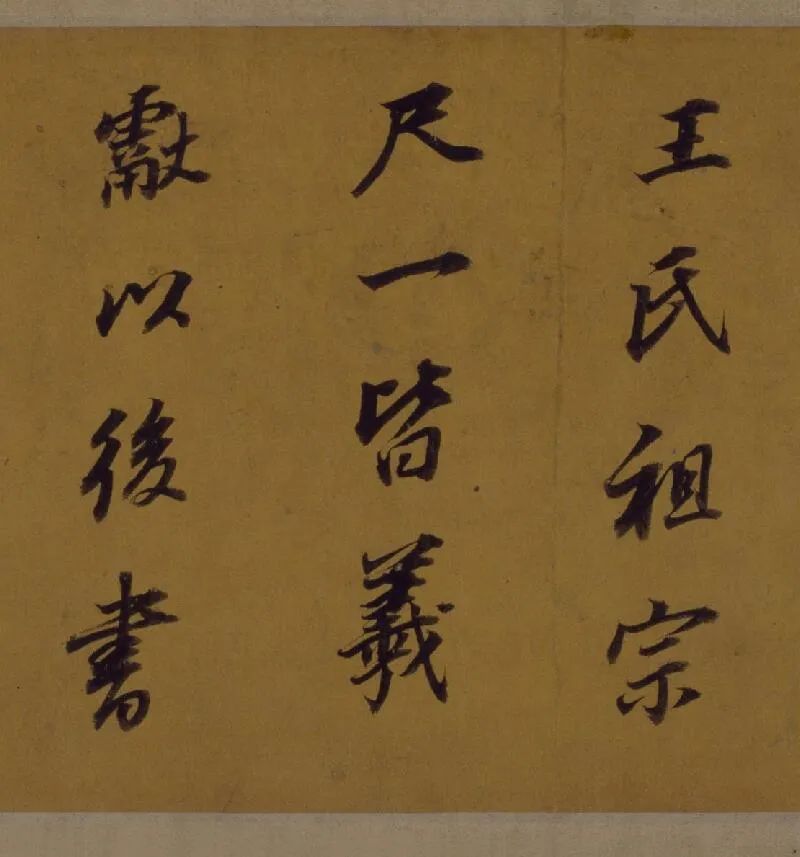 王氏祖宗
尺一皆羲
獻以後書